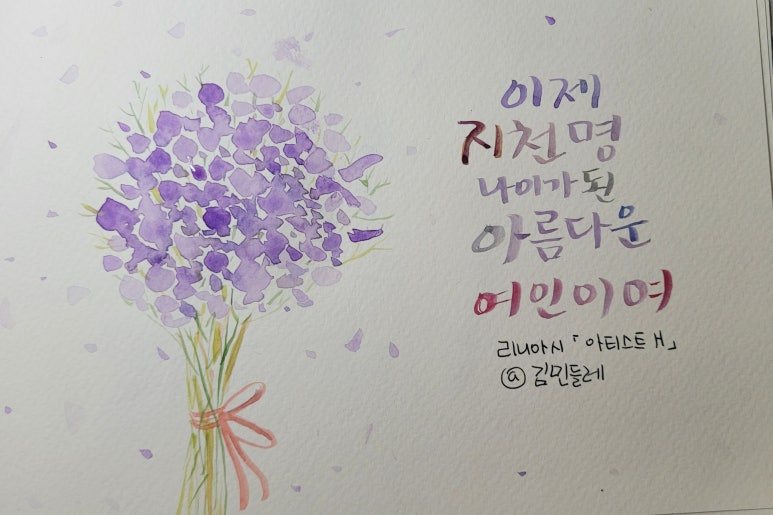 이제
지천명
나이가 된
아름다운
여인이여
리니아시「아티스트 H」
ⓐ 김민들레